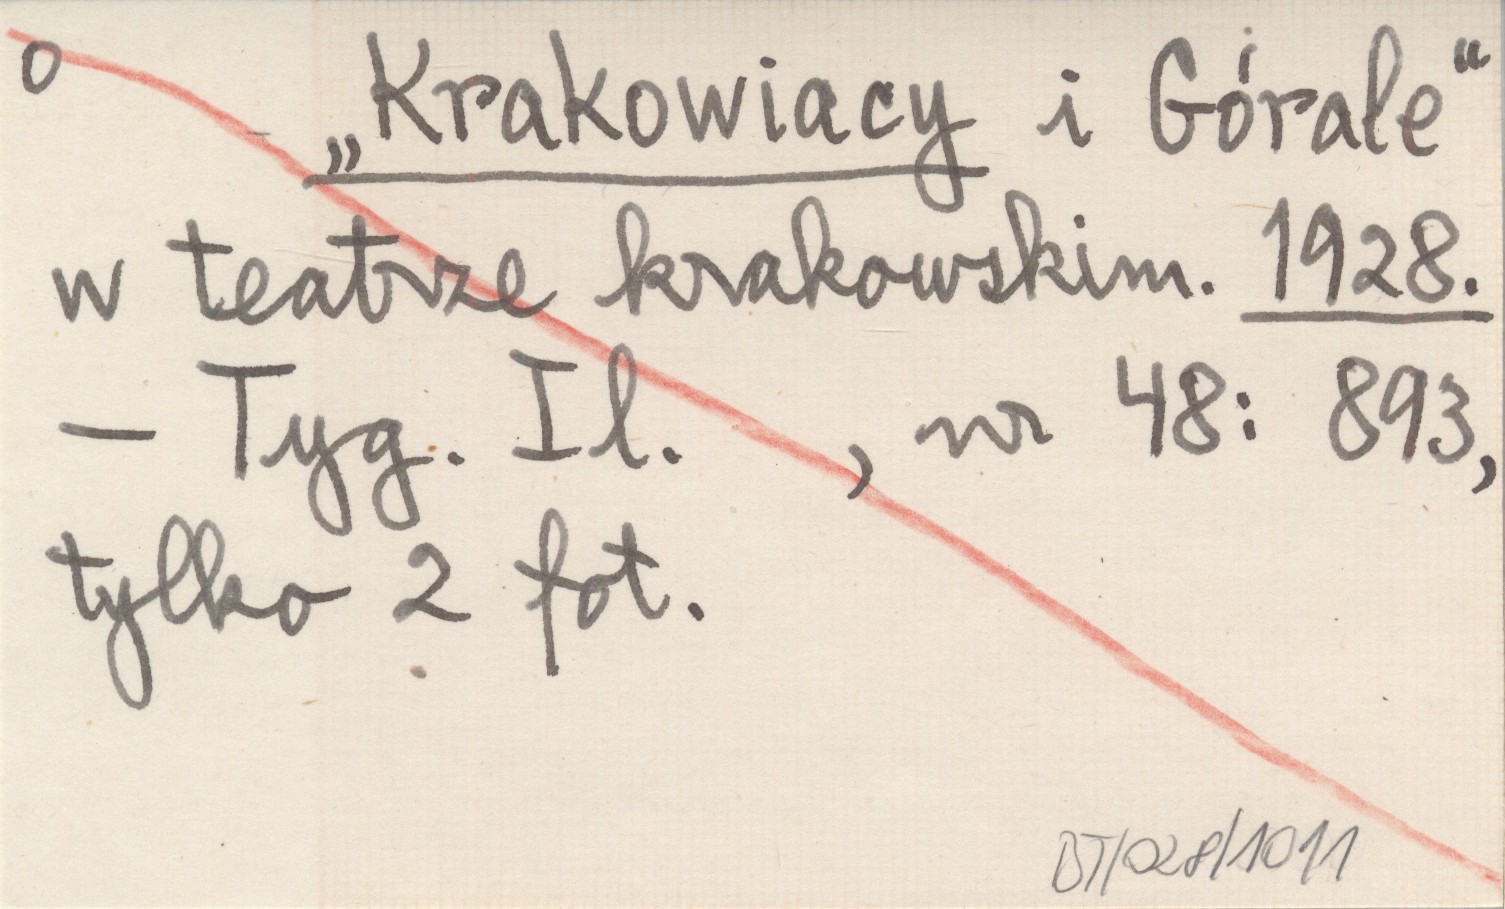 o
„Krakowiacy i Górale“
w teatrze krakowskim. 1928.
— Tyg. Il. , nr 48: 893,
tylko 2 fot.
BT/028/1011